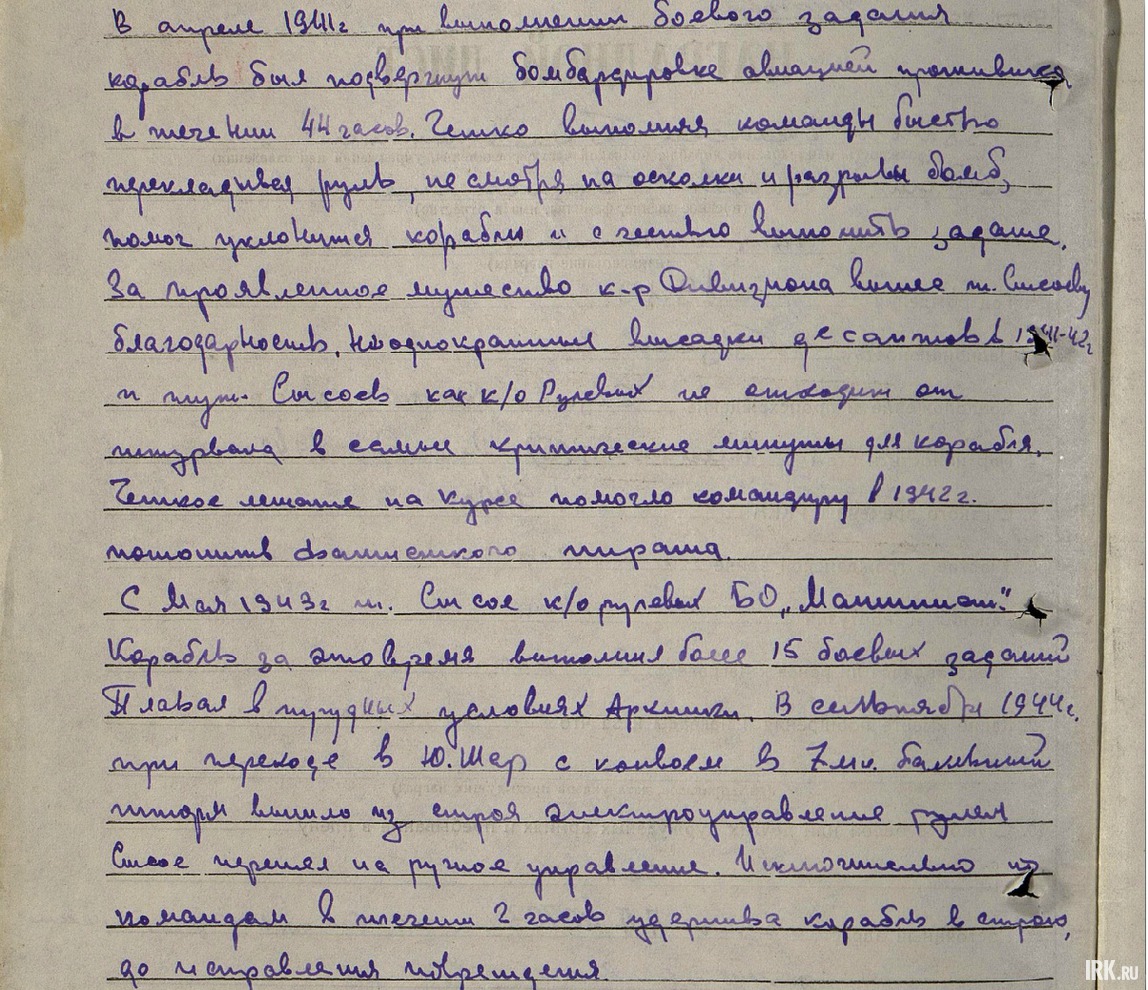 В апреле 1941г при выполнении боевого задания
корабль был подвергнут бомбардировке авиацией противника
в течении 44 часов. Четко выполняя команды быстро
перекладивая руль, не смотря на осколки и разрывы бомб,
помог уклонится кораблю и с честью выполнить задание.
За проявленное мужество к-р Дивизиона вынес т. Сысоеву
благодарность. Неоднократные высадки десантов в 1941-42г
и тут. Сысоев как к/о Рулевых не отходит от
штурвала в самые критические минуты для корабля.
Четкое лежание на курсе помогло командиру в 1942г.
потопить фашисткого пирата.
С Мая 1943г т. Сысоев к/о рулевых БО „Машинист".
Корабль за это время выполнил более 15 боевых заданий
Плавая в трудных условиях Арктики. В сентябре 1944г.
при переходе в Ю.Шар с конвоем в 7ми. бальный
шторм вышло из строя электроуправление рулем
Сысоев перешел на ручное управление. Исключительно
командам в течении 2 часов удержива корабль в строю,
до исправления повреждения
IRK.RU